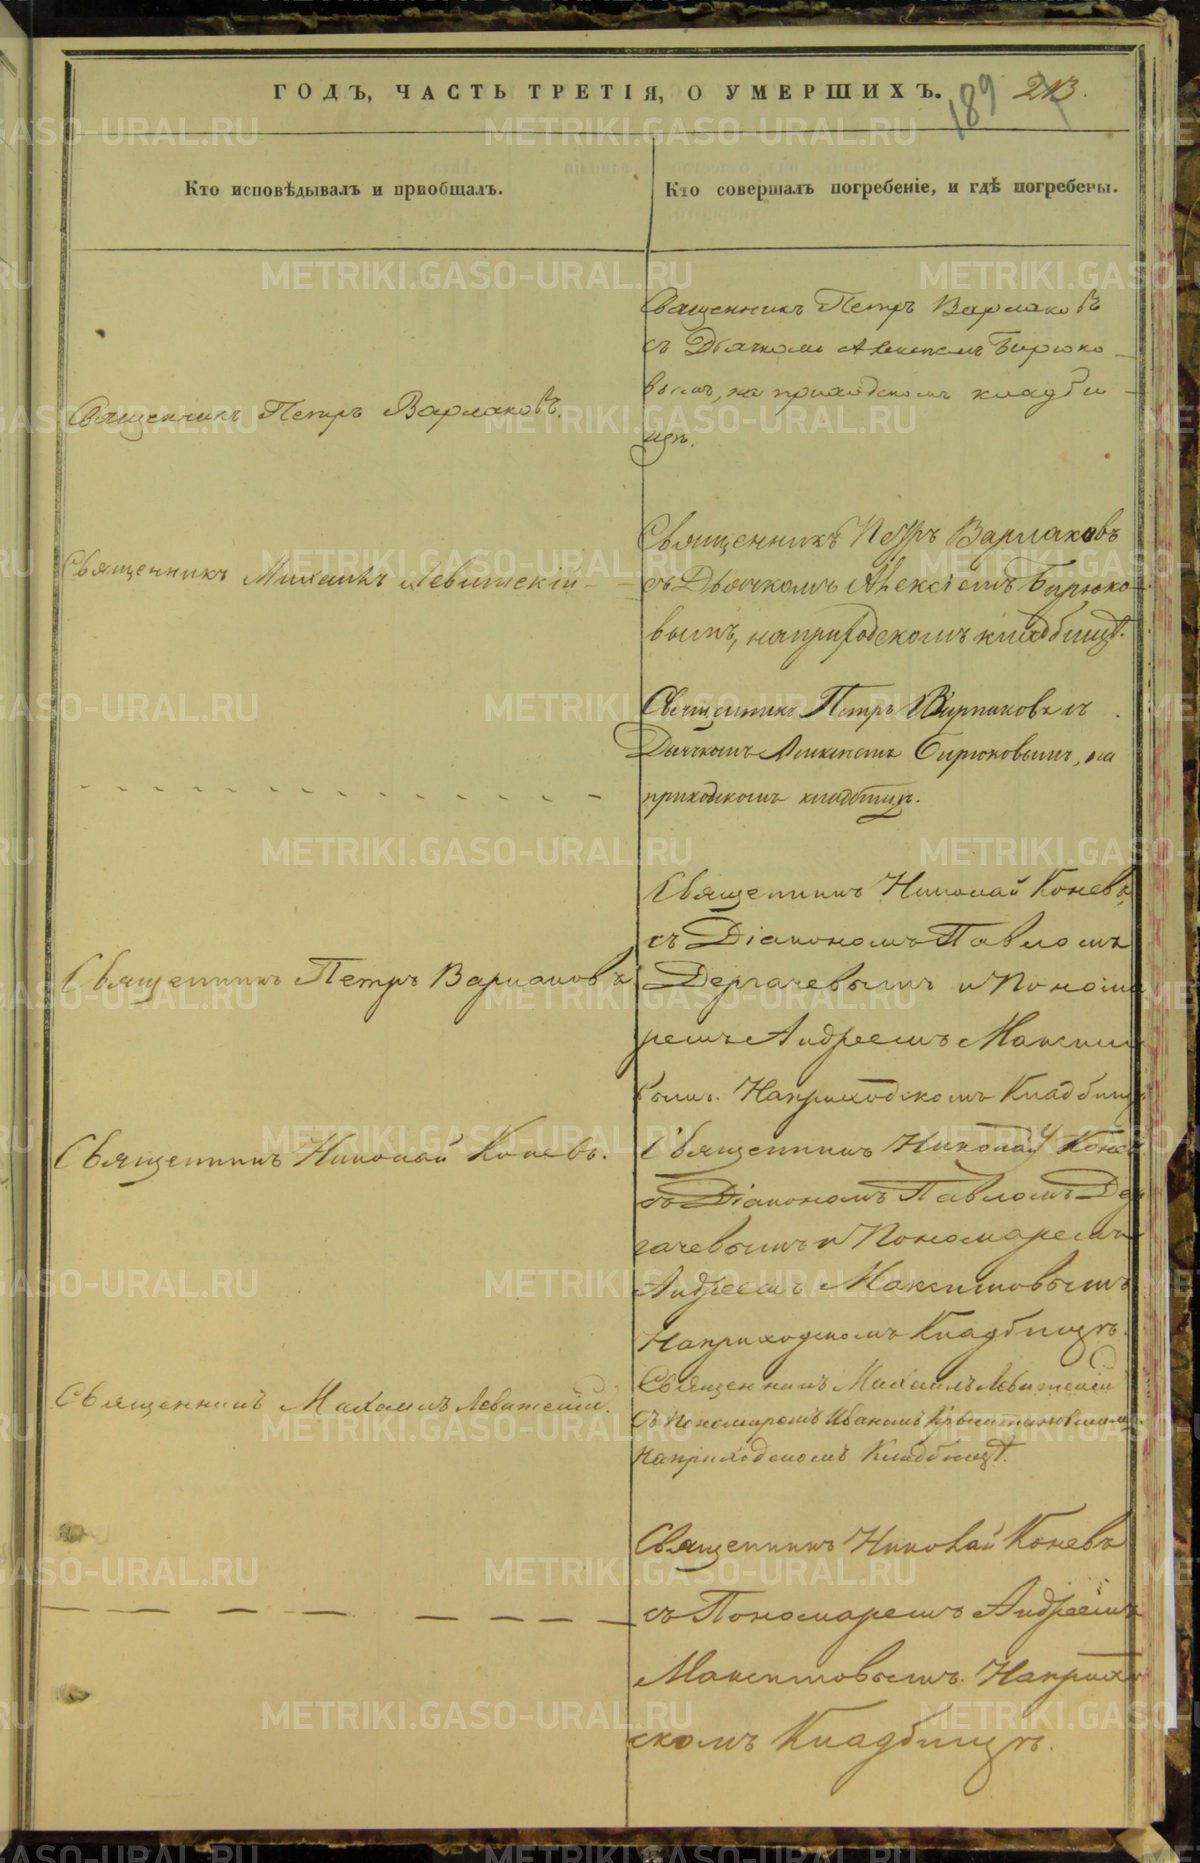 ГОДЪ, ЧАСТЬ ТРЕТІЯ, О УМЕРШИХЪ.
189 213.
Кто исповѣдывалъ и пріобщалъ.
Кто совершалъ погребеніе, и гдѣ погребены.
Священникъ Петръ Варлаковъ.
Священникъ Петръ Варлаковъ
съ Дьячкомъ Алексѣемъ Бирюко
вымъ, на приходскомъ кладби
щѣ.
Священникъ Михаилъ Левитскій
Священникъ Петръ Варлаковъ
съ Дьячкомъ Алексіемъ Бирюко
вымъ, на приходскомъ кладбищѣ.
Священникъ Петръ Варлаковъ съ
Дьячкомъ Алексѣемъ Бирюковымъ, на
приходскомъ кладбищѣ.
Священникъ Петръ Варлаковъ
Священникъ Николай Коневъ,
съ Діакономъ Павломъ
Дергачевымъ и Понома
ремъ Андреемъ Максимо
вымъ. На приходскомъ Кладбищѣ
Священникъ Николай Коневъ.
Священникъ Николай Коневъ
съ Діакономъ Павломъ Дер
гачевымъ и Пономаремъ
Андреемъ Максимовымъ
На приходскомъ Кладбищѣ.
Священникъ Михаилъ Левитскій.
Священникъ Михаилъ Левитскій
Съ Пономаремъ Иваномъ
На приходскомъ Кладбищѣ.
Священникъ Николай Коневъ
съ Пономаремъ Андреемъ
Максимовымъ. На прихо
скомъ Кладбищѣ.
METRIKI.GASO-URAL.RU